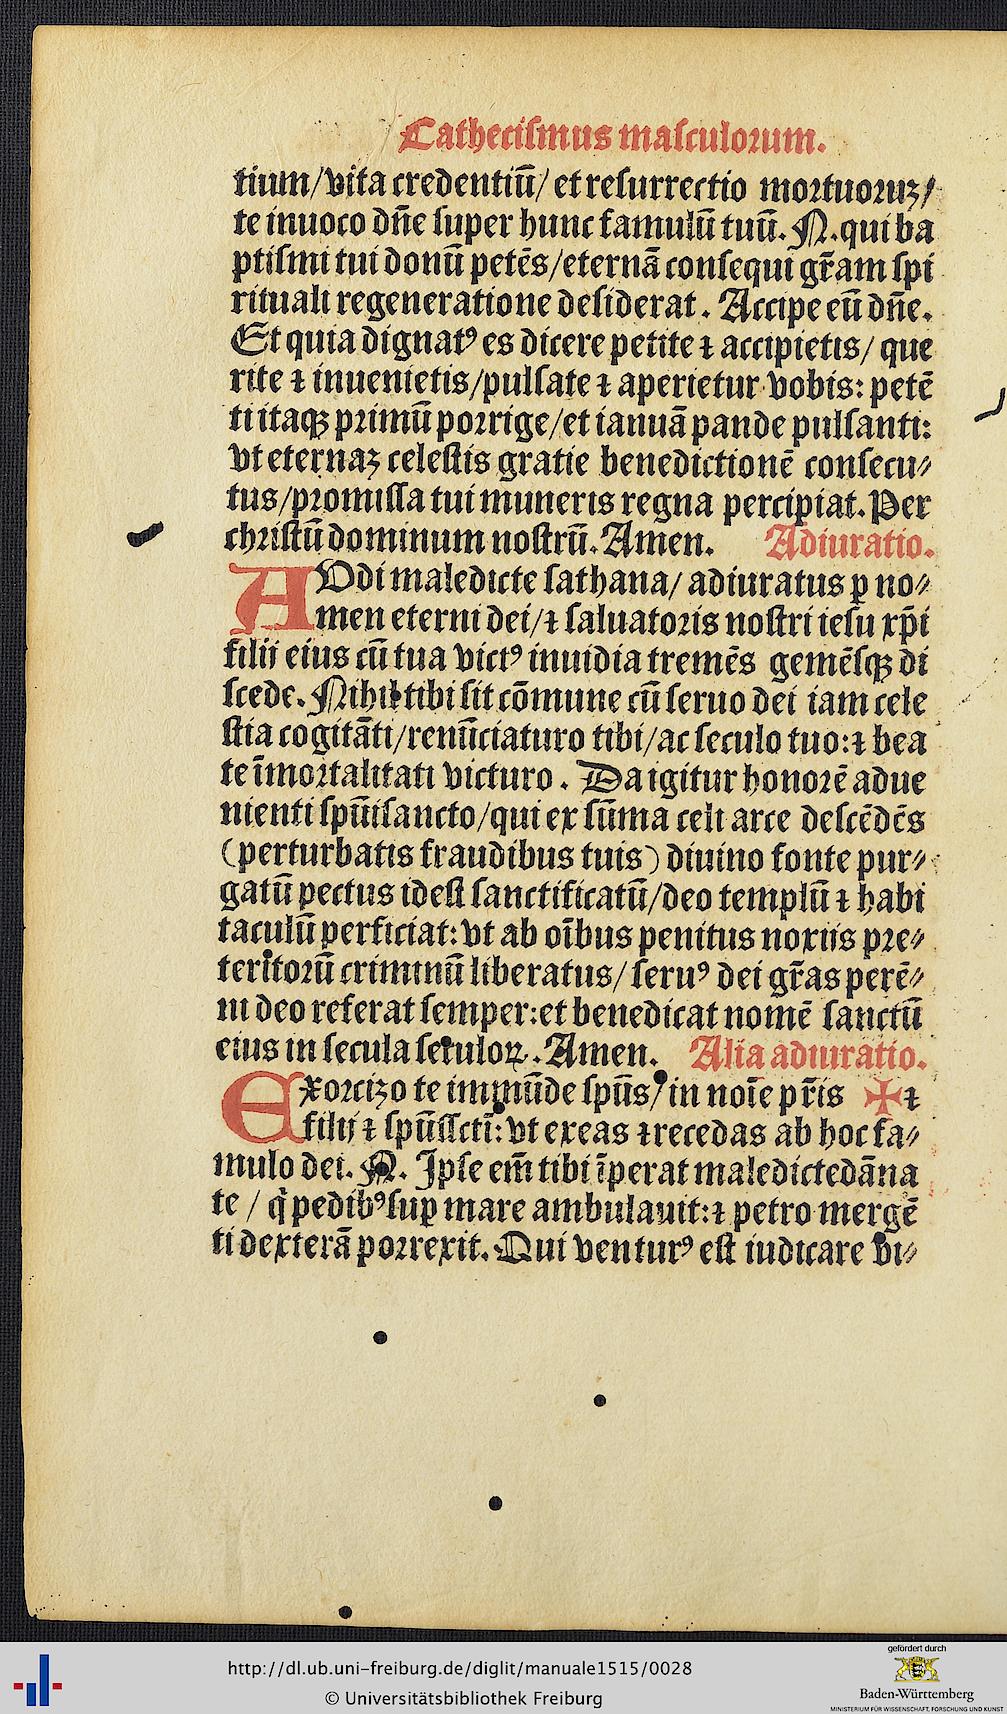 Cathecismus masculorum.
tium/vita credentiū/ et resurrectio mortuoruꝫ/
te inuoco dn̄e super hunc famulū tuū. N. qui ba
ptismi tui donū petēs/eternā consequi gr̄am spi
rituali regeneratione desiderat. Accipe eū dn̄e.
Et quia dignatꝰ es dicere petite ⁊ accipietis/ que
rite ⁊ inuenietis/pulsate ⁊ aperietur vobis: petē
ti itaqꝫ primū porrige/et ianuā pande pulsanti:
vt eternaꝫ celestis gratie benedictionē consecu⸗
tus/promissa tui muneris regna percipiat. Per
christū dominum nostrū. Amen. Adiuratio.
AUdi maledicte sathana/ adiuratus ꝑ no⸗
men eterni dei/⁊ saluatoris nostri iesu xp̄i
filij eius cū tua victꝰ inuidia tremēs gemēsqꝫ di
scede. Nihil tibi sit cōmune cū seruo dei iam cele
stia cogitāti/renūciaturo tibi/ac seculo tuo:⁊ bea
te īmortalitati victuro. Da igitur honorē adue
nienti spūisancto/qui ex sūma celi arce descēdēs
(perturbatis fraudibus tuis) diuino fonte pur⸗
gatū pectus idest sanctificatū/deo templū ⁊ habi
taculū perficiat: vt ab oībus penitus noxiis pre⸗
teritorū criminū liberatus/ seruꝰ dei gr̄as perē⸗
ni deo referat semper:et benedicat nomē sanctū
eius in secula seculoꝝ. Amen. Alia adiuratio.
Exorcizo te immūde spūs/in noīe pr̄is ✠ ⁊
filij ⁊ spūssctī: vt exeas ⁊recedas ab hoc fa⸗
mulo dei. N. Ipse em̄ tibi īperat maledictedāna
te / q̄ pedibꝰsuꝑ mare ambulauit:⁊ petro mergē
ti dexterā porrexit. Qui venturꝰ est iudicare vi⸗
http://dl.ub.uni-freiburg.de/diglit/manuale1515/0028
© Universitätsbibliothek Freiburg
gefördert durch
Baden-Württemberg
MINISTERIUM FÜR WISSENSCHAFT, FORSCHUNG UND KUNST